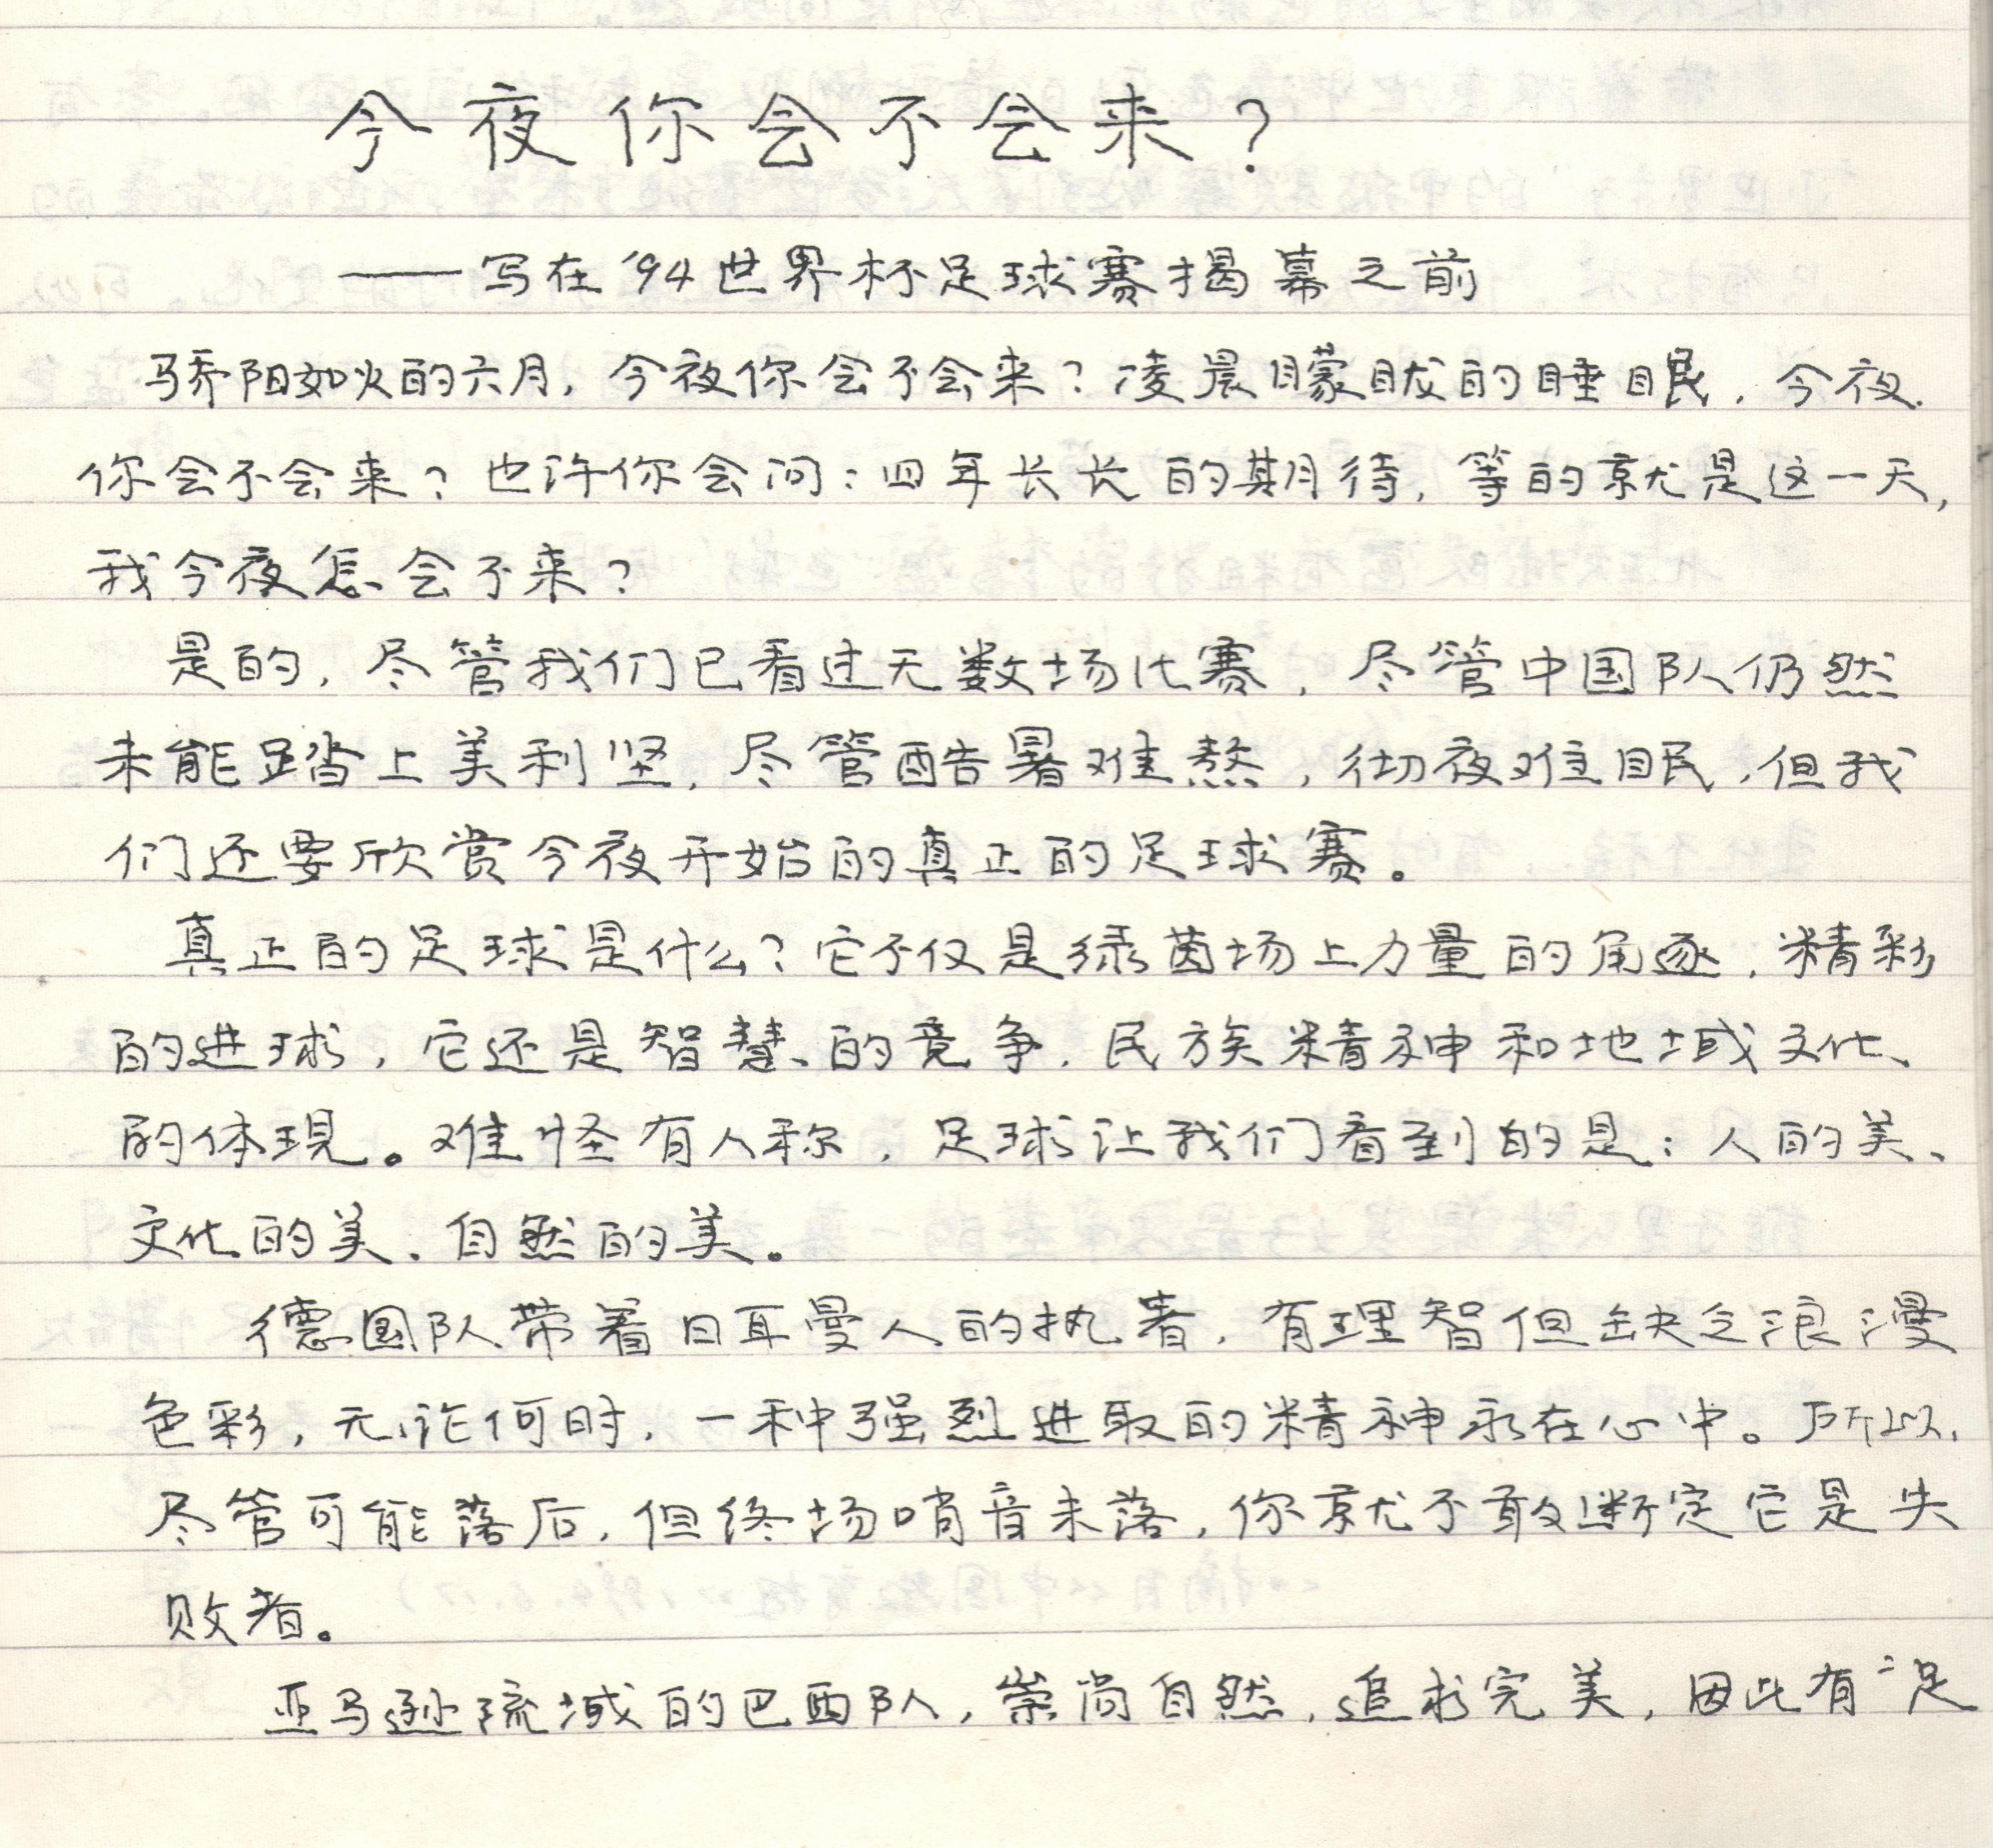 今夜你会不会来?
——写在'94世界杯足球赛揭幕之前
骄阳如火的六月,今夜你会不会来?凌晨矇眬的睡眠,今夜
你会不会来?也许你会问:四年长长的期待,等的就是这一天,
我今夜怎会不来?
是的,尽管我们已看过无数场比赛,尽管中国队仍然
未能踏上美利坚,尽管酷暑难熬,彻夜难眠,但我
们还要欣赏今夜开始的真正的足球赛。
真正的足球是什么?它不仅是绿茵场上力量的角逐,精彩
的进球,它还是智慧的竞争,民族精神和地域文化
的体现。难怪有人称,足球让我们看到的是:人的美、
文化的美、自然的美。
德国队带着日耳曼人的执著,有理智但缺乏浪漫
色彩,无论何时,一种强烈进取的精神永在心中。所以,
尽管可能落后,但终场哨音未落,你就不敢断定它是失
败者。
亚马逊流域的巴西队,崇尚自然,追求完美,因此有“足